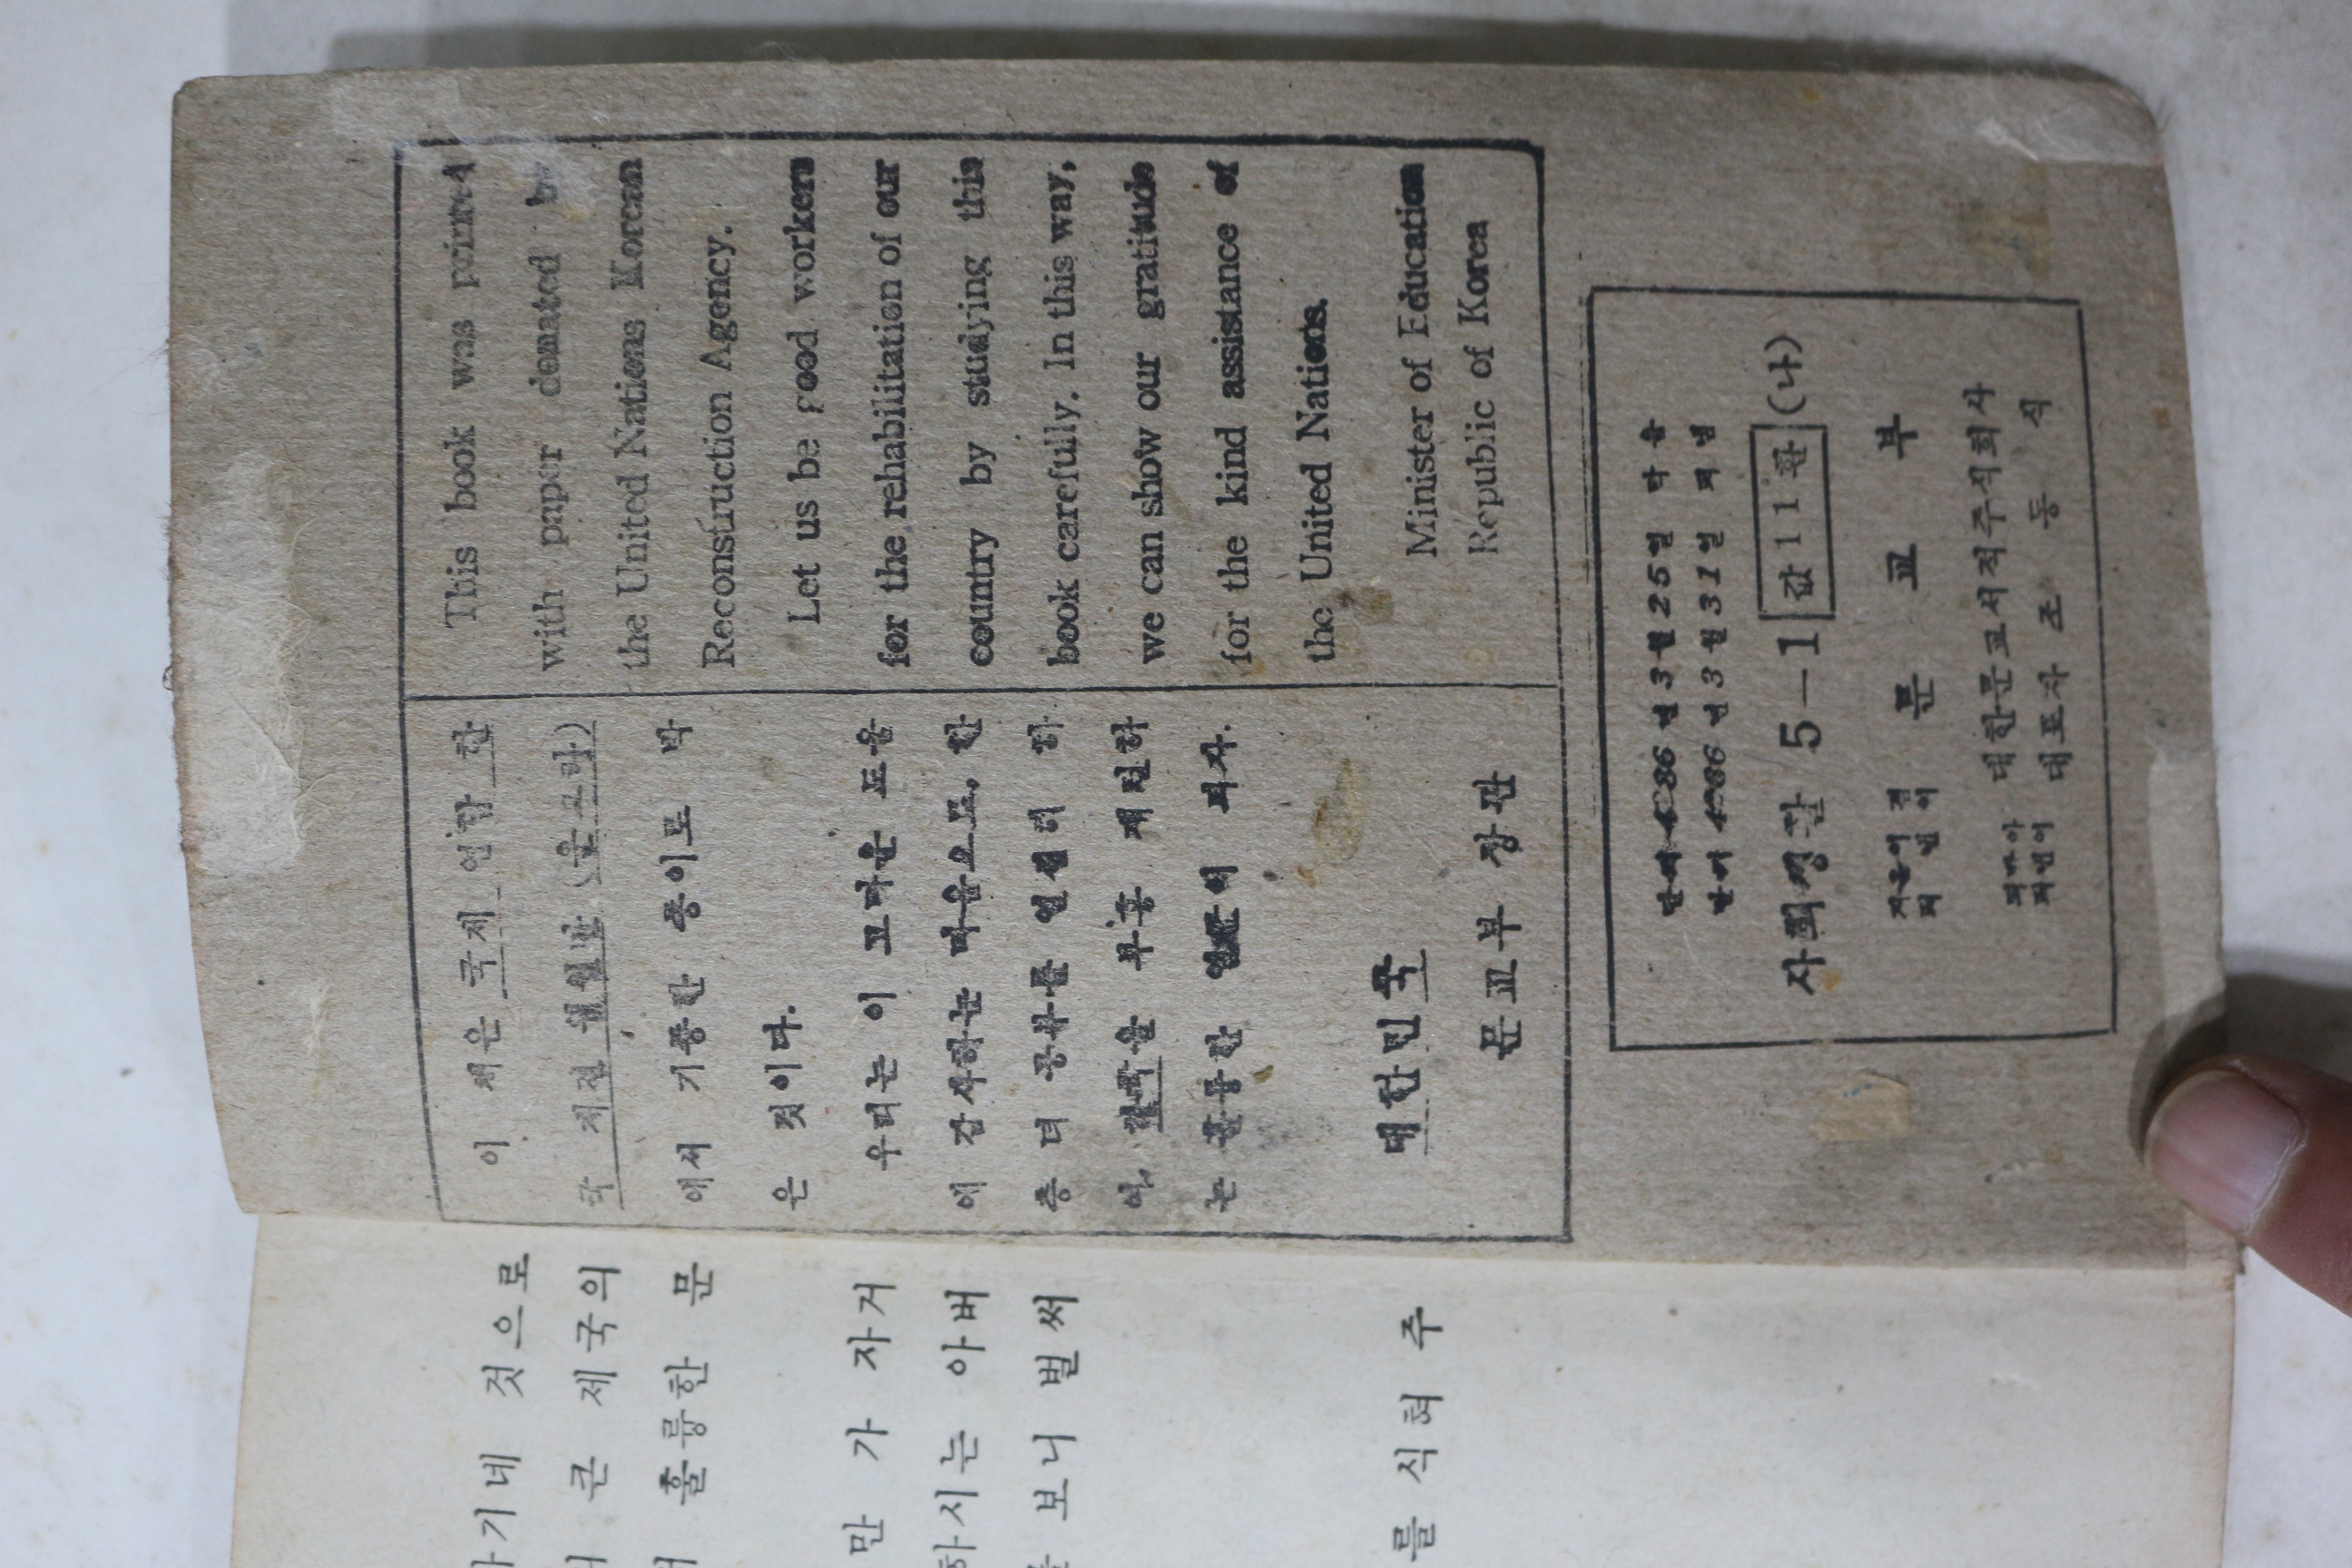 이 책은 국제 연합 한
국 재건 위원단 (운끄라)
에서 기증한 종이로 박
은 것이다.
우리는 이 고마운 도움
에 감사하는 마음으로, 한
층 더 공부를 열심히 하
여, 한국을 부흥 재건하
는 훌륭한 일꾼이 되자.
대한민국
문교부 장관
This book was printed
with paper donated by
the United Nations Korean
Reconstruction Agency.
Let us be good workers
for the rehabilitation of our
country by studying this
book carefully. In this way,
we can show our gratitude
for the kind assistance of
the United Nations.
Minister of Education
Republic of Korea
단기 4286 년 3 월 25 일 박음
단기 4286 년 3 월 31 일 펴냄
사회생활 5—1 값 11 환 (나)
지은이 겸 펴낸이 문교부
대한문교서적주식회사
펴낸이 대표자 조동식
기네 것으로
큰 제국의
훌륭한 문
만 가 자거
하시는 아버
보니 벌써
를 식혀 주